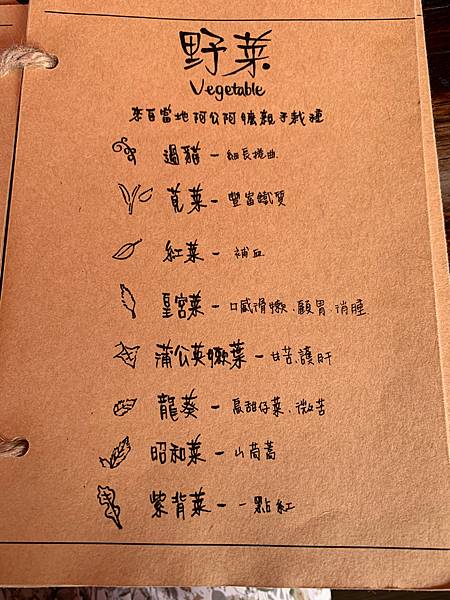 野菜
Vegetable
來自當地阿公阿嬤親手栽種
過貓 - 細長捲曲
莧菜 - 豐富鐵質
紅菜 - 補血
皇宮菜 - 口感滑嫩、顧胃、消腫
蒲公英嫩葉 - 甘苦、護肝
龍葵 - 黑甜仔菜、微苦
昭和菜 - 山茼蒿
紫背菜 - 一點紅